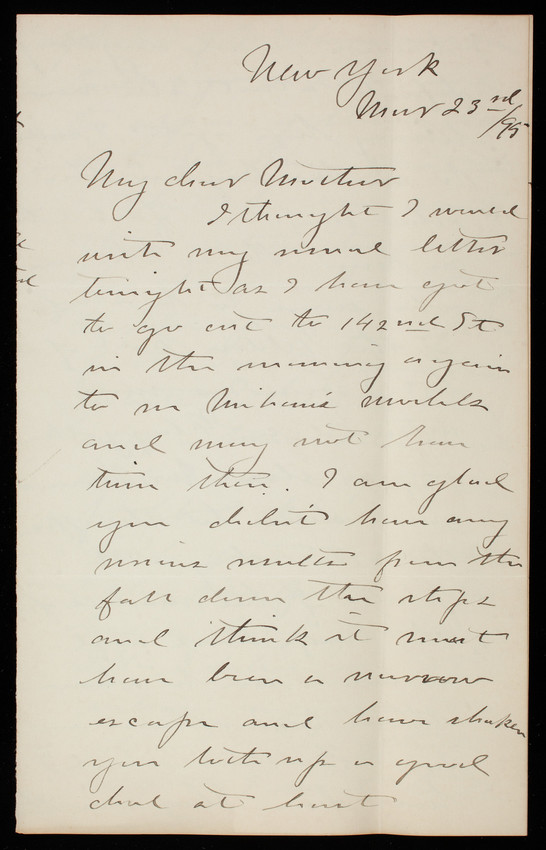 New York
Mar 23rd
/95
My dear Mother
I thought I would
write my usual letter
tonight as I have got
to go out to 142nd St
in the morning again
to see models
and may not have
time then. I am glad
you didn't have any
serious results from the
fall down the steps
and think it must
have been a narrow
escape and have shaken
you both up a good
deal at least